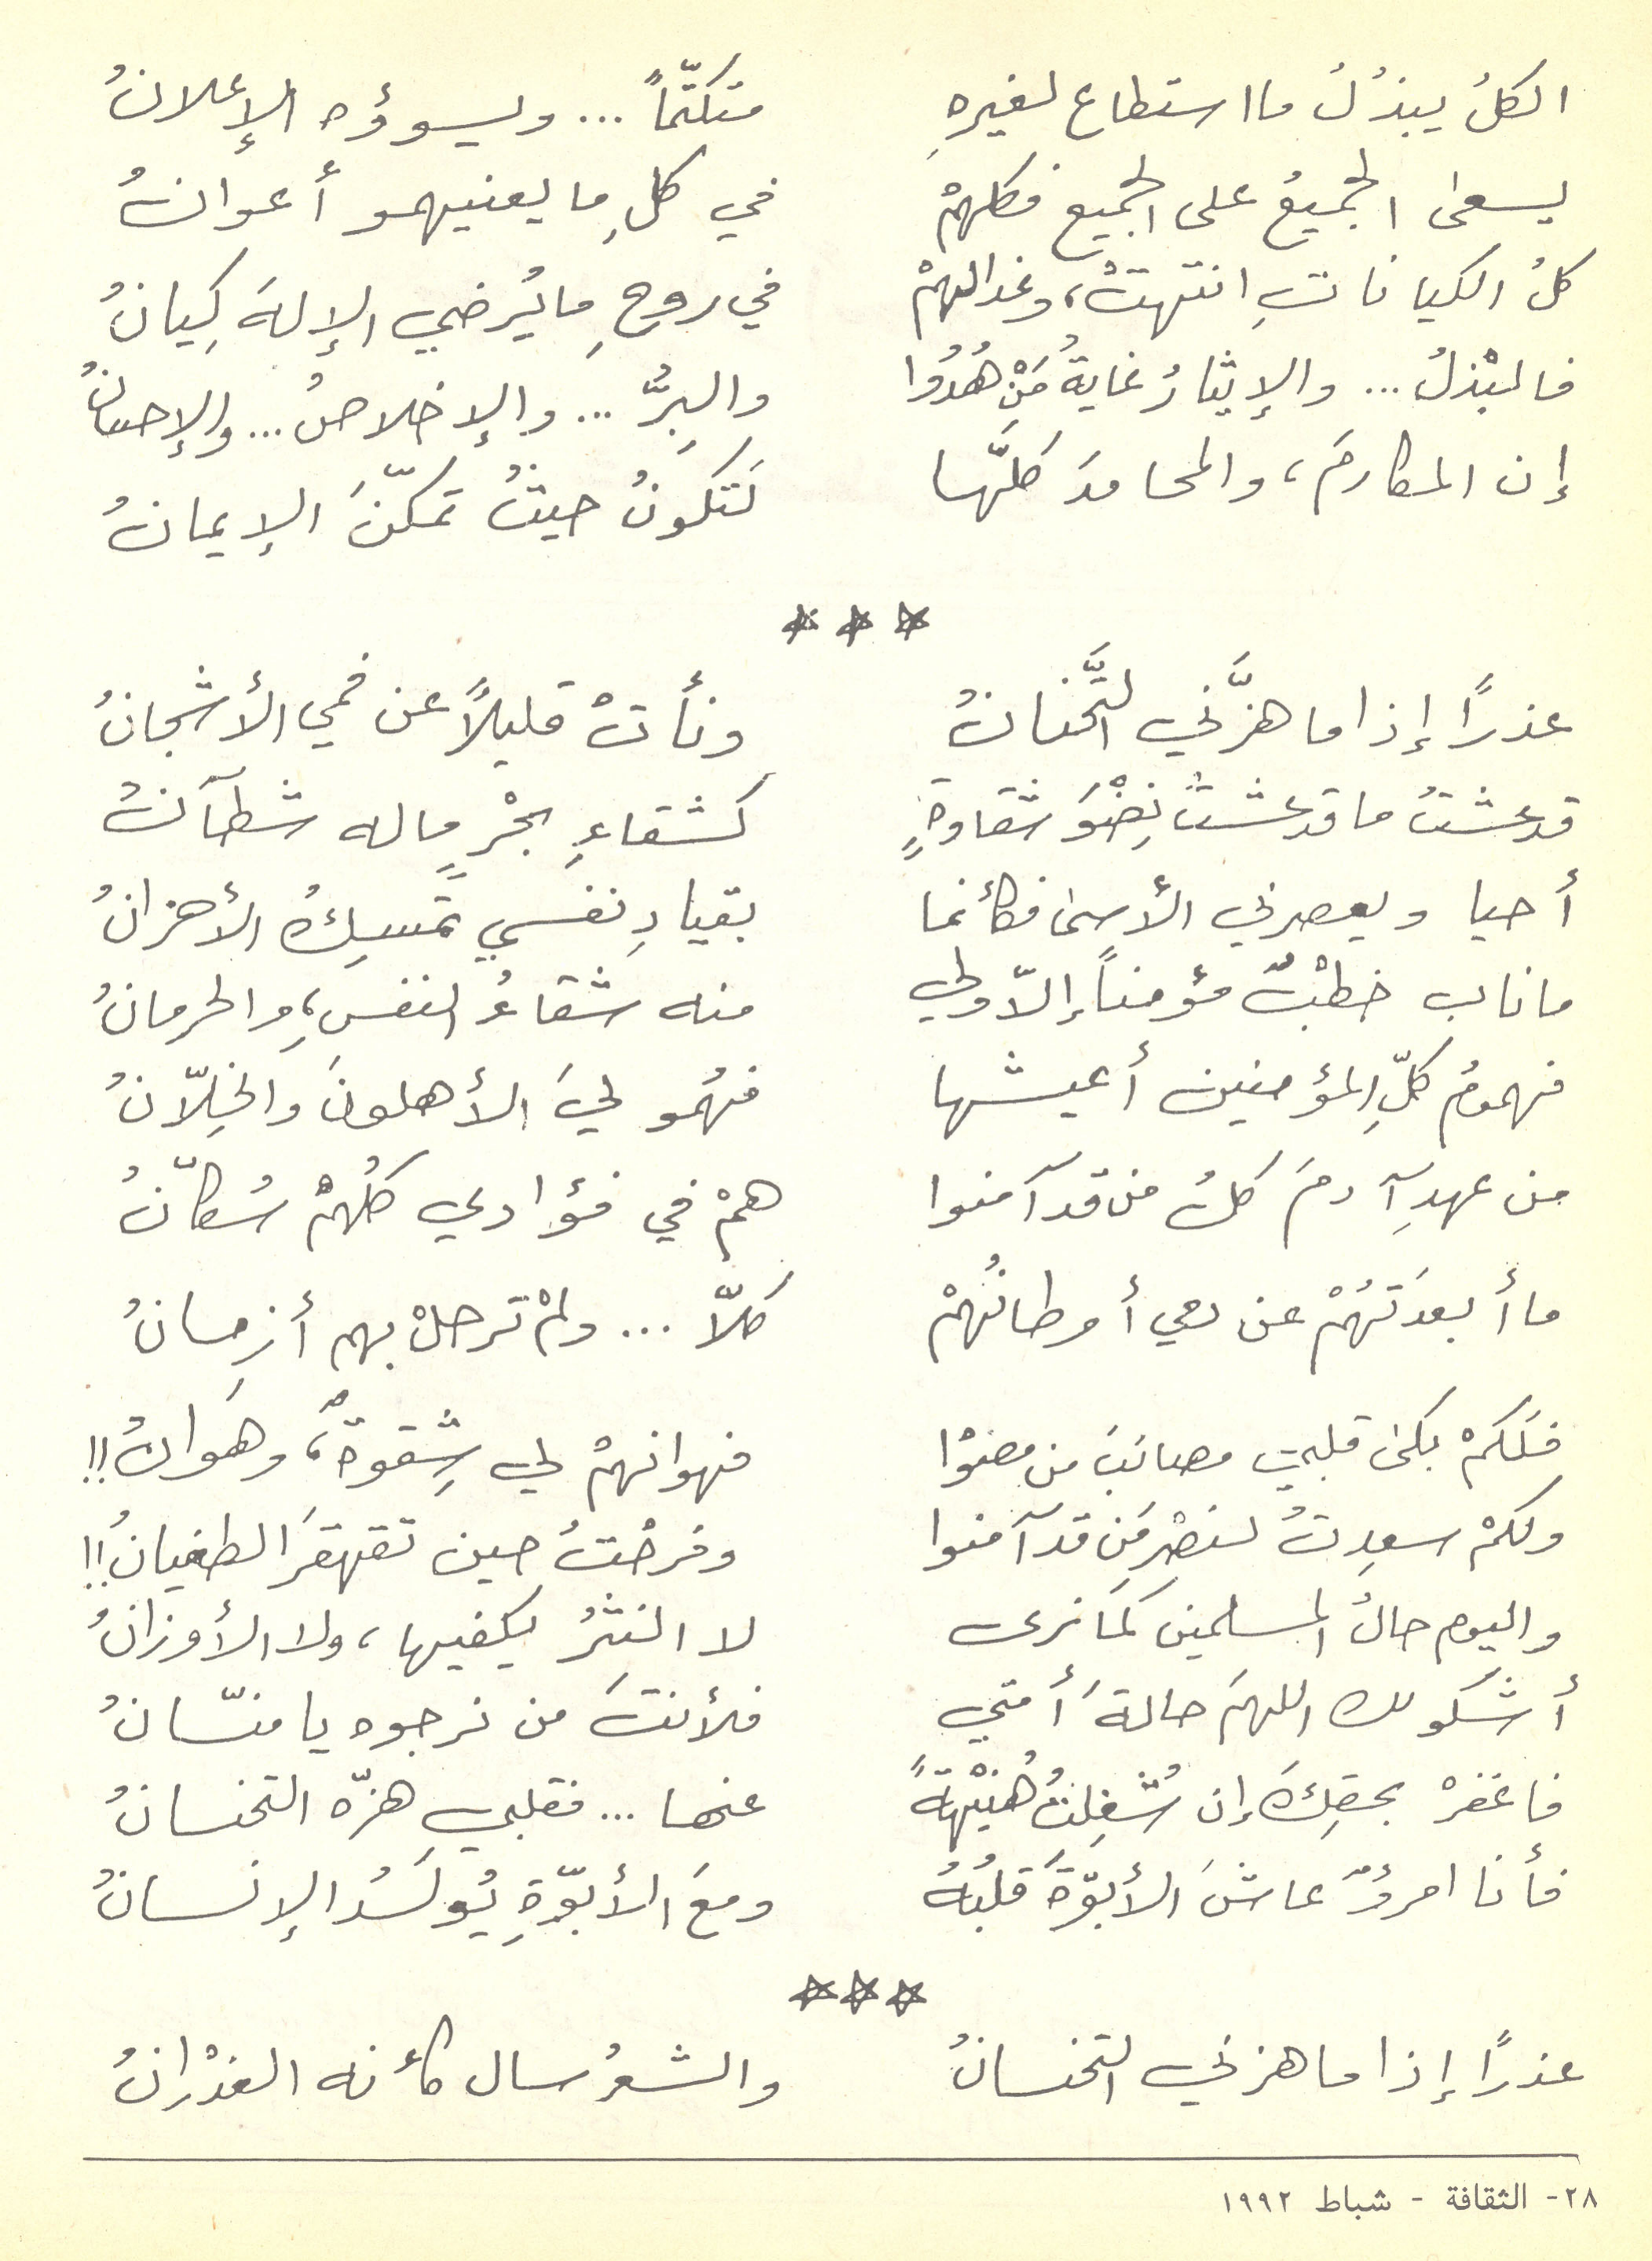 الكلُ يبذُلُ ما استطاع لغيرهِ متكتّماً ... ويسوؤه الإعلانُ
يسعى الجميعُ على الجميع فكلهمْ في كلِ ما يعنيهمو أعوانُ
كلُ الكياناتِ انتهتْ، وغدا لهمْ في روحِ ما يُرضي الإلهَ كِيانُ
فالبْذلُ ... والإيثارُ غايةُ مَنْ هُدُوا والبِرُّ ... والإخلاصُ ... والإحسانُ
إن المكارمَ، والمحامدَ كلَّها لَتكونُ حيثُ تمكّنَ الإيمانُ
***
عذراً إذا ما هزَّني التَّحنانُ ونأتْ قليلاً عن فمي الأشجانُ
قد عشتُ ما قد عشتُ نِضْوَ شقاوةٍ كشقاءِ بحْرٍ ما له شطآنُ
أحيا ويعصرني الأسى فكأنما بقيادِ نفسي تمسِكُ الأحزانُ
ما ناب خطْبٌ مؤمناً إلاّ ولي منه شقاءُ النفسِ، والحرمانُ
فهمومُ كلِّ المؤمنين أعيشها فهُمو ليَ الأهلونَ والخِلّانُ
من عهدِ آدمَ كلُ من قد آمنوا همْ في فؤادي كلُهمْ سُكّانُ
ما أبعدَتهُمْ عن دمي أوطانُهمْ كلّا ... ولمْ ترحلْ بهم أزمانُ
فلَكمْ بكى قلبي مصائبَ من مضوْا فهوانهمْ لي شِقوةٌ، وهَوانُ!!
ولكمْ سعِدتُ لنصْرِ مَن قد آمنوا وفرحْتُ حين تقهقرَ الطغيانُ!!
واليوم حالُ المسلمين كمَا نرى لا النثرُ يكفيها، ولا الأوزانُ
أشكو لك اللهمَ حالةَ أمتي فلأنتَ من نرجوه يا منّانُ
فاغفرْ بحقِكَ إن شُغِلتُ هُنيْهةً عنها ... فقلبي هزّه التحنانُ
فأنا امرؤٌ عاشَ الأبوّةَ قلبُهُ ومعَ الأبوّةِ يُولَدُ الإنسانُ
***
عذراً إذا ما هزني التحنانُ والشعرُ سال كأنه الغدْرانُ
٢٨- الثقافة - شباط ١٩٩٢